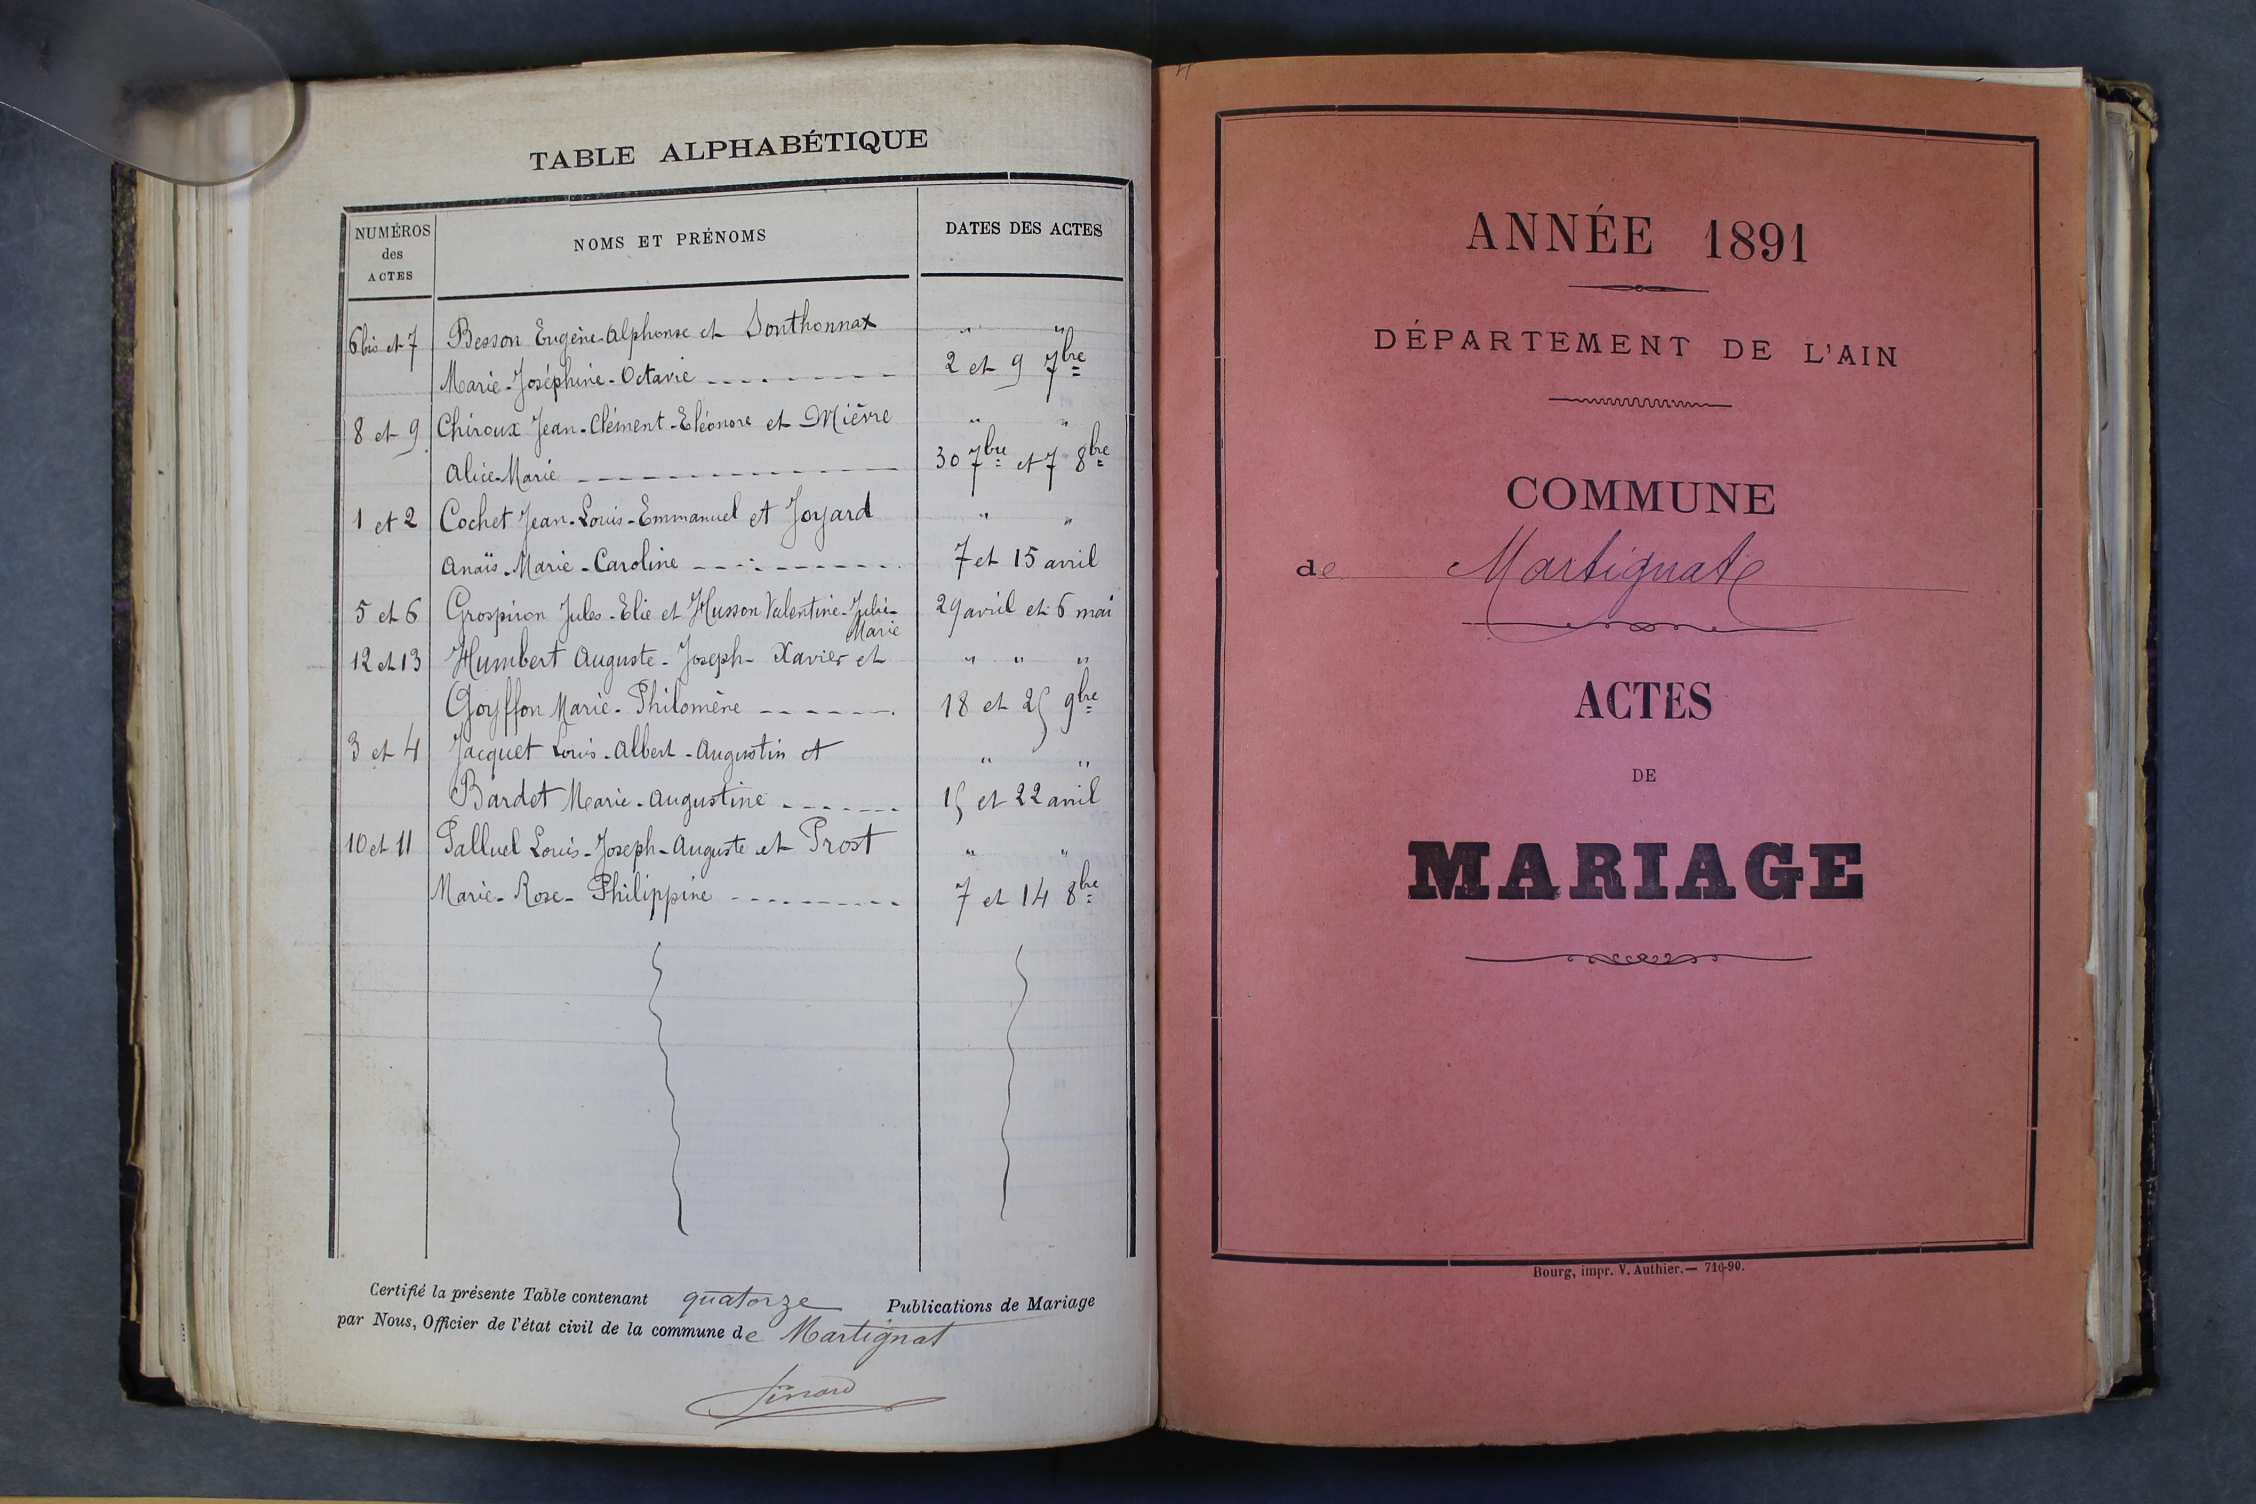 TABLE ALPHABÉTIQUE
NUMÉROS des ACTES
NOMS ET PRÉNOMS
DATES DES ACTES
6 bis et 7 Besson Eugène-Alphonse et Sonthonnax " "
Marie-Joséphine-Octavie 2 et 9 7bre
8 et 9 Chiroux Jean-Clément-Eléonore et Mièvre " "
Alice-Marie 30 7bre et 7 8bre
1 et 2 Cochet Jean-Louis-Emmanuel et Joyard " "
Anaïs-Marie-Caroline 7 et 15 avril
5 et 6 Grospiron Jules-Elie et Husson Valentine-Julie- 29 avril et 6 mai
Marie
12 et 13 Humbert Auguste-Joseph-Xavier et " " "
Goyffon Marie-Philomène 18 et 25 9bre
3 et 4 Jacquet Louis-Albert-Augustin et " "
Bardet Marie-Augustine 15 et 22 avril
10 et 11 Palluel Louis-Joseph-Auguste et Prost " "
Marie-Rose-Philippine 7 et 14 8bre
Certifié la présente Table contenant quatorze Publications de Mariage
par Nous, Officier de l'état civil de la commune de Martignat
ANNÉE 1891
DÉPARTEMENT DE L'AIN
COMMUNE
de Martignat
ACTES
DE
MARIAGE
Bourg, impr. V. Authier.— 716-90.